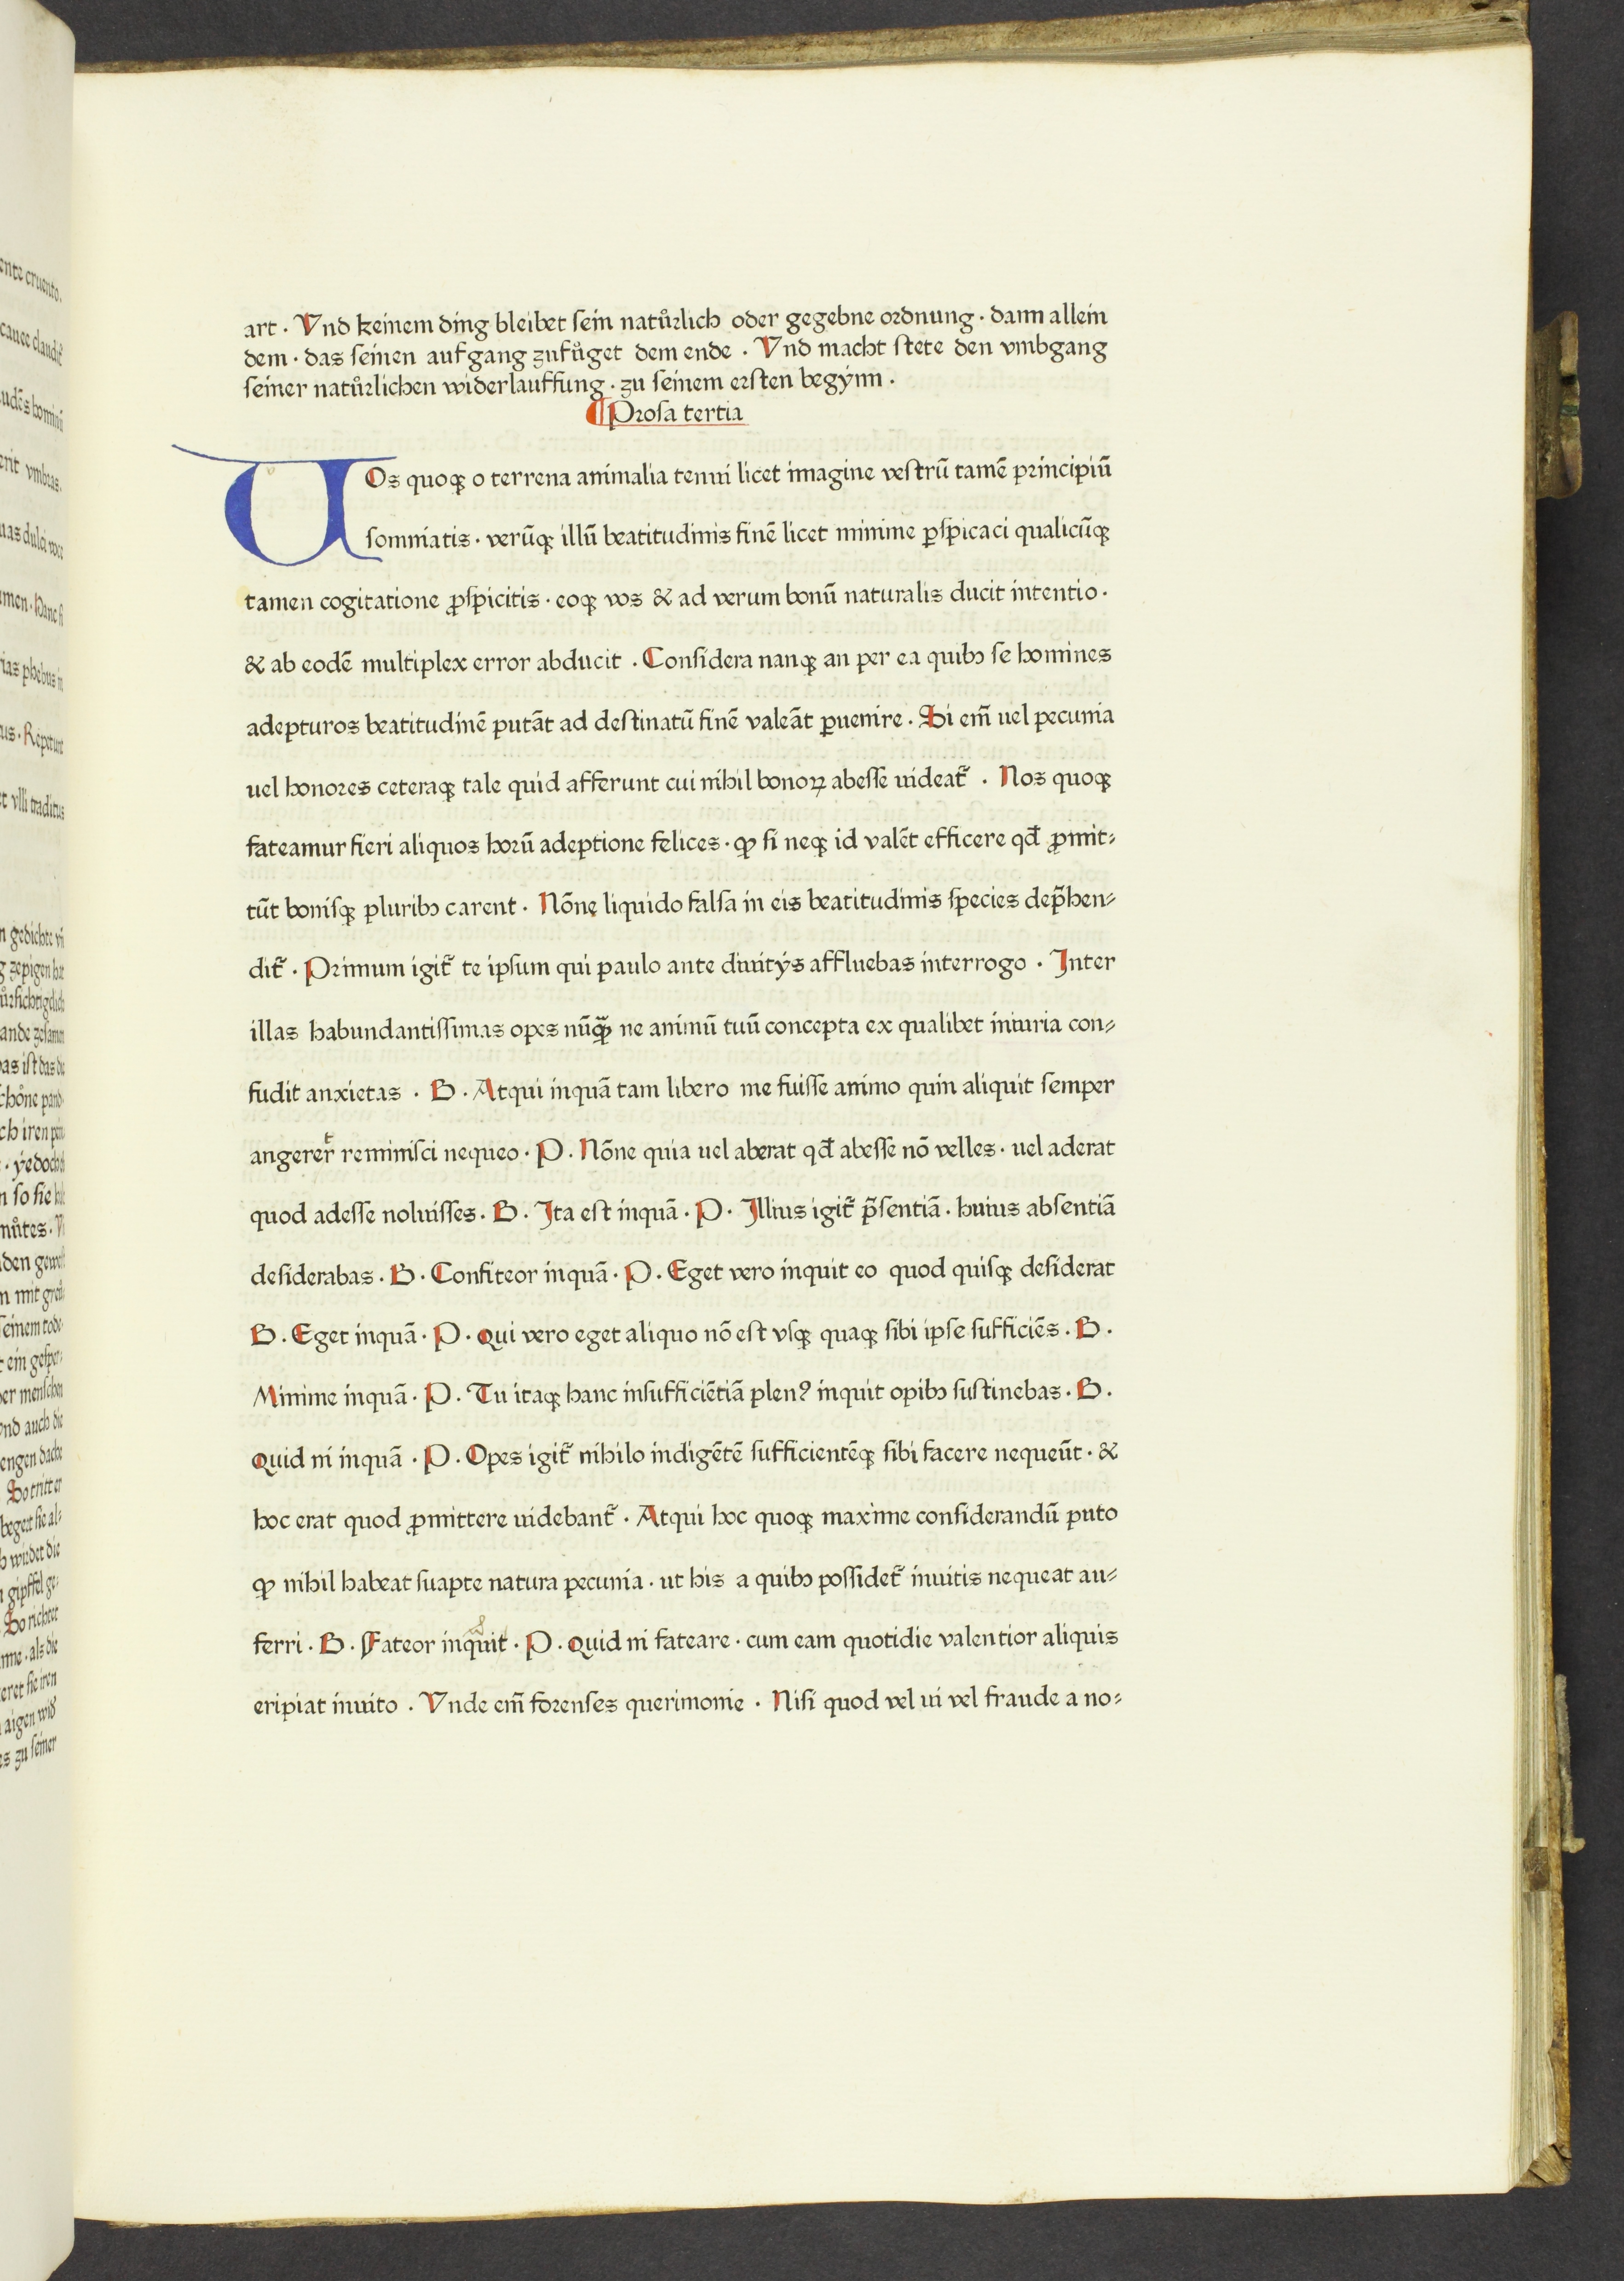 art · Vnd keinem ding bleibet sein natůrlich oder gegebne ordnung · dann allein
dem · das seinen aufgang zufůget dem ende · Vnd macht stete den vmbgang
seiner natůrlichen widerlauffung · zu seinem ersten begÿnn ·
¶Prosa tertia
VOs quoqꝫ o terrena animalia tenui licet imagine vestrũ tamẽ principiũ
somniatis · verũqꝫ illũ beatitudinis finẽ licet minime ꝑspicaci qualicũqꝫ
tamen cogitatione ꝓspicitis · eoqꝫ vos & ad verum bonũ naturalis ducit intentio ·
& ab eodẽ multiplex error abducit · Considera nanqꝫ an per ea quibꝰ se homines
adepturos beatitudinẽ putãt ad destinatũ finẽ valeãt ꝑuenire · Si em̃ uel pecunia
uel honores ceteraqꝫ tale quid afferunt cui nihil bonoꝝ abesse uideat᷑ · Nos quoqꝫ
fateamur fieri aliquos horũ adeptione felices · ꝙ si neqꝫ id valẽt efficere qđ ꝓmit⸗
tũt bonisqꝫ pluribꝰ carent · Nõne liquido falsa in eis beatitudinis species dep̃hen⸗
dit᷑ · Primum igit᷑ te ipsum qui paulo ante diuitÿs affluebas interrogo · Inter
illas habundantissimas opes nũꝙ̃ ne animũ tuũ concepta ex qualibet iniuria con⸗
fudit anxietas · B · Atqui inquã tam libero me fuisse animo quin aliquit semper
angerer᷑ reminisci nequeo · P · Nõne quia uel aberat qđ abesse nõ velles · uel aderat
quod adesse noluisses · B · Ita est inquã · P · Illius igit᷑ p̃sentiã · huius absentiã
desiderabas · B · Confiteor inquã · P · Eget vero inquit eo quod quisqꝫ desiderat
B · Eget inquã · P · Qui vero eget aliquo nõ est vsqꝫ quaqꝫ sibi ipse sufficiẽs · B ·
Minime inquã · P · Tu itaqꝫ hanc insufficiẽtiã plenꝰ inquit opibꝰ sustinebas · B ·
Quid ni inquã · P · Opes igit᷑ nihilo indigẽtẽ sufficientẽqꝫ sibi facere nequeũt · &
hoc erat quod ꝓmittere uidebant᷑ · Atqui hoc quoqꝫ maxime considerandũ puto
ꝙ nihil habeat suapte natura pecunia · ut his a quibꝰ possidet᷑ inuitis nequeat au⸗
ferri · B · Fateor inquit · P · Quid ni fateare · cum eam quotidie valentior aliquis
eripiat inuito · Vnde em̃ forenses querimonie · Nisi quod vel ui vel fraude a no⸗